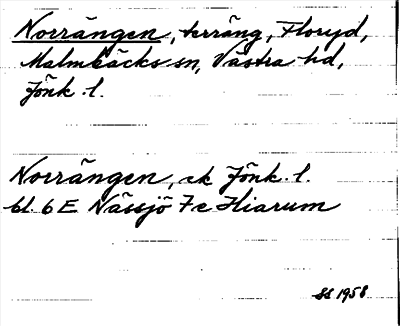 Norrängen, terräng, Floryd,
Malmbäcks sn, Västra hd,
Jönk. l.
Norrängen, ek Jönk. l.
bl. 6 E Nässjö 7 c Hiarum
SS 1958